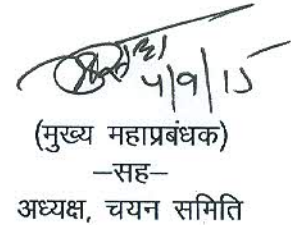 4/9/15
(मुख्य महाप्रबंधक)
–सह–
अध्यक्ष, चयन समिति